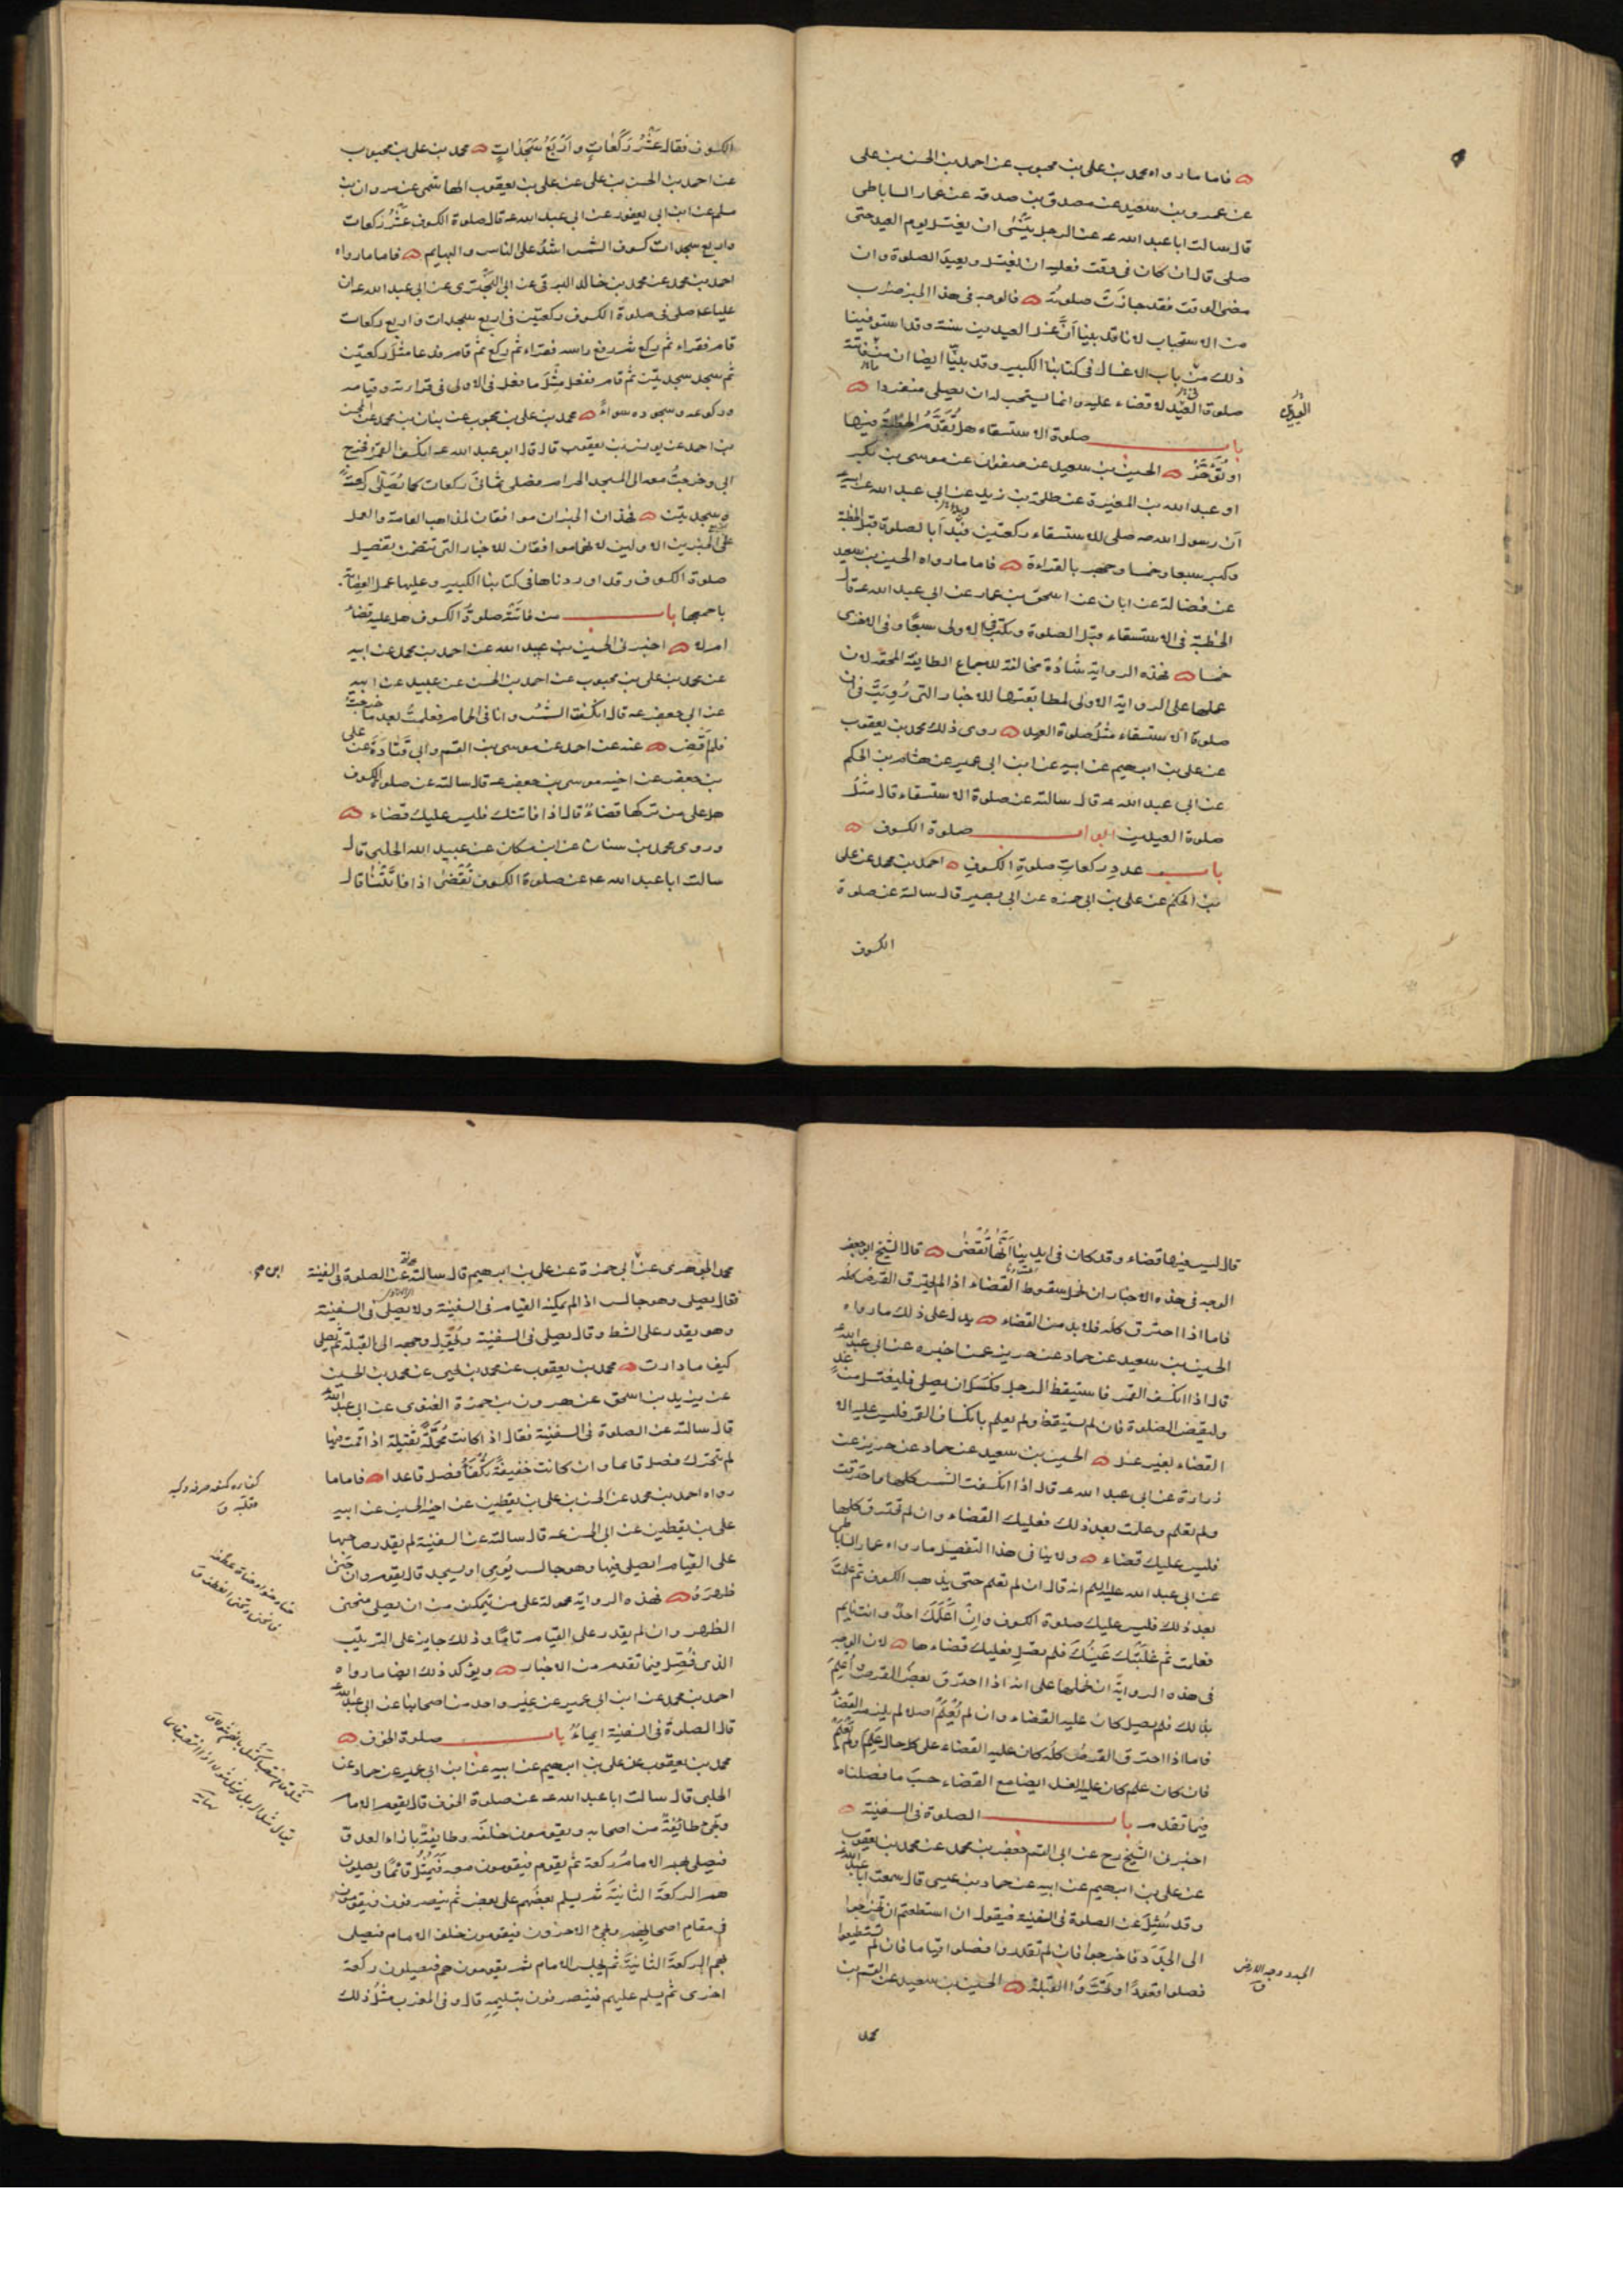 فاما ما رواه محمد بن علی بن محبوب عن احمد بن الحسن بن علی
عن عمرو بن سعید عن مصدق بن صدقه عن عمار الساباطی
قال سالت ابا عبد الله عه عن الرجل ینسی ان یغتسل یوم العید حتی
صلی قال ان کان فی وقت فعلیه ان یغتسل ویعید الصلوة وان
مضی الوقت فقد جازت صلوته فالوجه فی هذا الخبر ضرب
من الاستحباب لانا قد بینا ان غسل العیدین سنة وقد استوفینا
ذلک فی باب الاغسال فی کتابنا الکبیر وقد بینا ایضا ان من فاتته
صلوة العید لا قضاء علیه وانما یستحب له ان یصلی منفردا
العیدین
باب صلوة الاستسقاء هل تقدم الخطبة فیها
او تؤخر الحسین بن سعید عن صفوان عن موسی بن بکر
او عبد الله بن المغیرة عن طلحة بن زید عن ابی عبد الله عن ابیه
ان رسول الله صه صلی للاستسقاء رکعتین فبدا بالصلوة قبل الخطبة
وکبر سبعا وخمسا وجهر بالقراءة فاما ما رواه الحسین بن سعید
عن فضالة عن ابان عن اسحق بن عمار عن ابی عبد الله عه قال
الخطبة فی الاستسقاء قبل الصلوة ویکبر فی الاولی سبعا وفی الاخری
خمسا فهذه الروایة شاذة مخالفة لاجماع الطایفة المحقة لان
عملها علی الروایة الاولی لمطابقتها للاخبار التی رویت فی ان
صلوة الاستسقاء مثل صلوة العید روی ذلک محمد بن یعقوب
عن علی بن ابرهیم عن ابیه عن ابن ابی عمیر عن هشام بن الحکم
عن ابی عبد الله عه قال سالته عن صلوة الاستسقاء قال مثل
صلوة العیدین ابواب صلوة الکسوف
باب عدد رکعات صلوة الکسوف احمد بن محمد عن علی
بن الحکم عن علی بن ابی حمزه عن ابی بصیر قال سالته عن صلوة
الکسوف
الکسوف فقال عشر رکعات واربع سجدات محمد بن علی بن محبوب
عن احمد بن الحسن بن علی عن علی بن یعقوب الهاشمی عن مروان بن
مسلم عن ابن ابی یعفور عن ابی عبد الله عه قال صلوة الکسوف عشر رکعات
واربع سجدات کسوف الشمس اشد علی الناس والبهایم فاما ما رواه
احمد بن محمد عن محمد بن خالد البرقی عن ابی البختری عن ابی عبد الله عه ان
علیا عه صلی فی صلوة الکسوف رکعتین فی اربع سجدات واربع رکعات
قام فقراء ثم رکع ثم رفع راسه فقراء ثم رکع ثم قام فدعا مثل رکعتین
ثم سجد سجدتین ثم قام ففعل مثل ما فعل فی الاولی فی قراءته وقیامه
ورکوعه وسجوده سواء محمد بن علی بن محبوب عن بنان بن محمد عن المحسن
بن احمد عن یونس بن یعقوب قال قال ابو عبد الله عه انکسف القمر فخرج
ابی وخرجت معه الی المسجد الحرام فصلی ثمانی رکعات کما یصلی رکعة
وسجدتین فهذان الخبران موافقان لمذاهب العامة والعمل
علی الخبرین الاولین لانهما موافقان للاخبار التی تتضمن تفصیل
صلوة الکسوف وقد اوردناها فی کتابنا الکبیر وعلیها عمل العصابة
باجمعها باب من فاتته صلوة الکسوف هل علیه قضاء
ام لا اخبرنی الحسین بن عبید الله عن احمد بن محمد عن ابیه
عن محمد بن علی بن محبوب عن احمد بن الحسن عن عبید عن ابیه
عن ابی جعفر عه قال انکسفت الشمس وانا فی الحمام فعلمت بعد ما خرجت
فلم اقض عنه عن احمد عن موسی بن القسم وابی قتادة عن علی
بن جعفر عن اخیه موسی بن جعفر عه قال سالته عن صلوة الکسوف
هل علی من ترکها قضاء قال اذا فاتتک فلیس علیک قضاء
وروی محمد بن سنان عن ابن مسکان عن عبید الله الحلبی قال
سالت ابا عبد الله عه عن صلوة الکسوف تقضی اذا فاتتنا قال
قال لیس فیها قضاء وقد کان فی ایدینا انها تقضی قال الشیخ ابو جعفر
الوجه فی هذه الاخبار ان نحمل سقوط القضاء اذا لم یحترق القرص کله
فاما اذا احترق کله فلا بد من القضاء یدل علی ذلک ما رواه
الحسین بن سعید عن حماد عن حریز عمن اخبره عن ابی عبد الله عه
قال اذا انکسف القمر فاستیقظ الرجل فکسل ان یصلی فلیغتسل من غد
ولیقض الصلوة فان لم یستیقظ ولم یعلم بانکساف القمر فلیس علیه الا
القضاء بغیر غسل الحسین بن سعید عن حماد عن حریز عن
زرارة عن ابی عبد الله عه قال اذا انکسفت الشمس کلها واحترقت
ولم تعلم وعلمت بعد ذلک فعلیک القضاء وان لم تحترق کلها
فلیس علیک قضاء ولا ینافی هذا التفصیل ما رواه عمار الساباطی
عن ابی عبد الله علیه السلم انه قال ان لم تعلم حتی یذهب الکسوف ثم علمت
بعد ذلک فلیس علیک صلوة الکسوف وان اعلمک احد وانت نایم
فعلمت ثم غلبتک عینک فلم تصل فعلیک قضاءها لان الوجه
فی هذه الروایة ان نحملها علی انه اذا احترق بعض القرص واعلم
بذلک فلم یصل کان علیه القضاء وان لم یعلم اصلا لم یلزمه القضاء
فاما اذا احترق القرص کله کان علیه القضاء علی کل حال علم او لم یعلم
فان کان علم کان علیه الغسل ایضا مع القضاء حسب ما فصلناه
فیما تقدم باب الصلوة فی السفینة
اخبرنی الشیخ رح عن ابی القسم جعفر بن محمد عن محمد بن یعقوب
عن علی بن ابرهیم عن ابیه عن حماد بن عیسی قال سمعت ابا عبد الله عه
وقد سئل عن الصلوة فی السفینة فیقول ان استطعتم ان تخرجوا
الی الجدد فاخرجوا فان لم تقدروا فصلوا قیاما فان لم تستطیعوا
فصلوا قعودا وتحروا القبلة الحسین بن سعید عن القسم بن
الجدد وجه الارض ق
محمد
محمد الجوهری عن ابی حمزة عن علی بن ابرهیم قال سالته عن الصلوة فی السفینة
فقال یصلی وهو جالس اذا لم یمکنه القیام فی السفینة ولا یصلی فی السفینة
وهو یقدر علی الشط وقال یصلی فی السفینة ویحول وجهه الی القبلة ثم یصلی
کیف ما دارت محمد بن یعقوب عن محمد بن یحیی عن محمد بن الحسین
عن یزید بن اسحق عن هرون بن حمزة الغنوی عن ابی عبد الله عه
قال سالته عن الصلوة فی السفینة فقال اذا کانت محملة ثقیلة اذا قمت فیها
لم تتحرک فصل قائما وان کانت خفیفة تکفأ فصل قاعدا فاما ما
رواه احمد بن محمد عن الحسن بن علی بن یقطین عن اخیه الحسین عن ابیه
علی بن یقطین عن ابی الحسن عه قال سالته عن السفینة لم یقدر صاحبها
علی القیام ایصلی فیها وهو جالس یؤمی او یسجد قال یقوم وان حنی
ظهره فهذه الروایة محمولة علی من یتمکن من ان یصلی منحنی
الظهر وان لم یقدر علی القیام تاما وذلک جایز علی الترتیب
الذی فصل فیما تقدم من الاخبار ویؤکد ذلک ایضا ما رواه
احمد بن محمد عن ابن ابی عمیر عن غیر واحد من اصحابنا عن ابی عبد الله عه
قال الصلوة فی السفینة ایماء باب صلوة الخوف
محمد بن یعقوب عن علی بن ابرهیم عن ابیه عن ابن ابی عمیر عن حماد عن
الحلبی قال سالت ابا عبد الله عه عن صلوة الخوف قال یقوم الامام
وتجئ طائفة من اصحابه ویقومون خلفه وطایفة بازاء العدو
فیصلی بهم الامام رکعة ثم یقوم فیقومون معه فیمثل قائما ویصلون
هم الرکعة الثانیة ثم یسلم بعضهم علی بعض ثم ینصرفون فیقومون
فی مقام اصحابهم ویجئ الاخرون فیقومون خلف الامام فیصلی
بهم الرکعة الثانیة ثم یجلس الامام ثم یقومون هم فیصلون رکعة
اخری ثم یسلم علیهم فینصرفون بتسلیمه قال وفی المغرب مثل ذلک